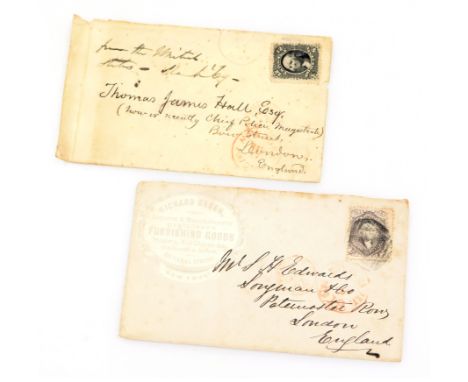 from the United
States -
Thomas James Hall, Esq.
(now or recently Chief Police Magistrate)
Bow Street,
London,
England.
RICHARD
FURNISHING GOODS
NEW YORK
Mr S H Edwards
Longman & Co
Paternoster Row,
London
England